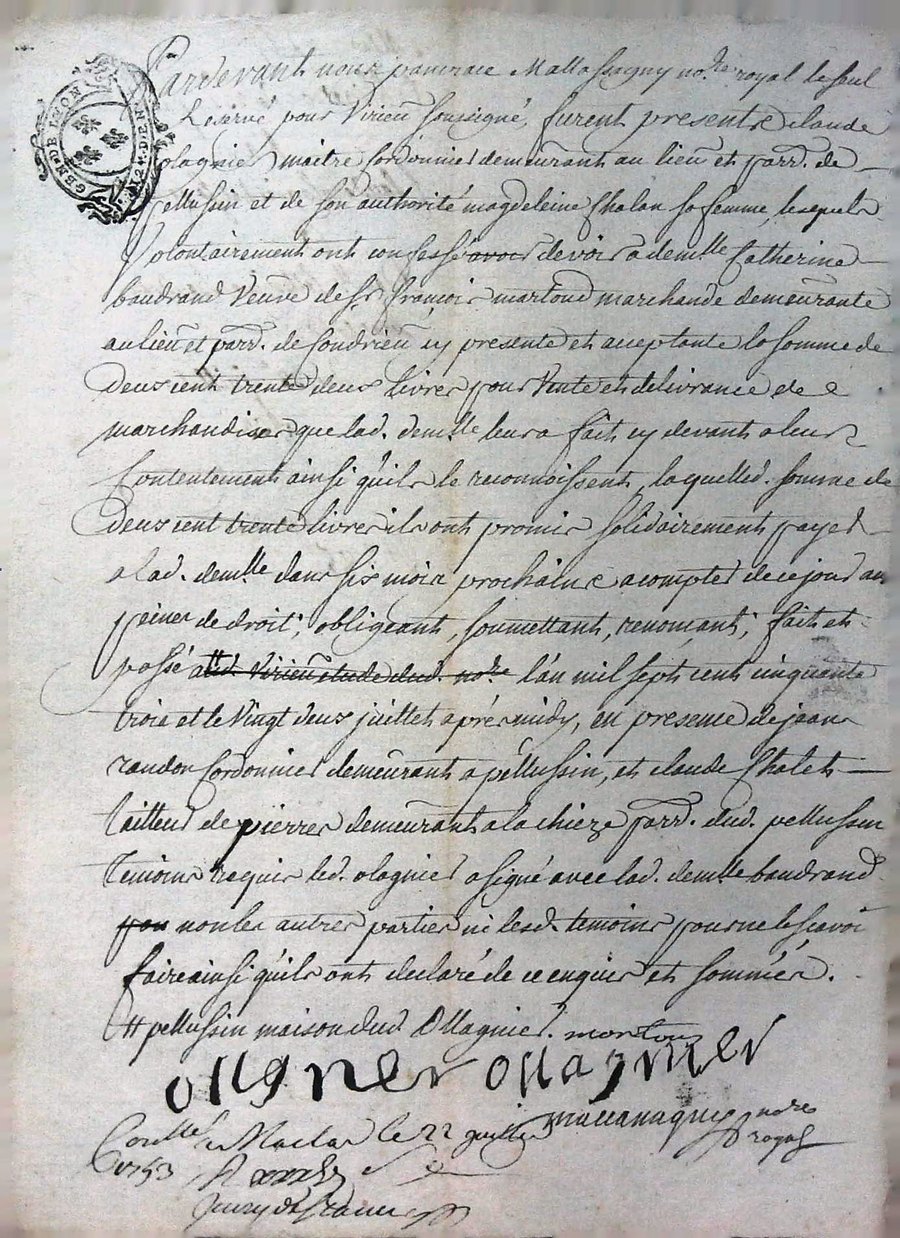 GEN. DE LYON
Pardevant nous pancrace Mallassagny no.re royal le seul
Reservé pour Virieu soussigné, furent presents claude
olagnier maitre Cordonnier demeurant au lieu et parr. de
pellussin et de son authorité magdeleine Chalan sa femme, lesquels
Volontairement ont confessé avoir devoir a demlle Catherine
baudrand Veuve de Sr françois martoud marchande demeurante
au lieu et parr. de Condrieu cy presente et acceptante la somme de
deux cent trente deux livres pour Vente et delivrance de
marchandises que lad. demlle leur a fait cy devant a leur
Contentement ainsi qu'ils le reconnoissent, laquelled. somme de
deux cent trente livres ils ont promis solidairement payer
a lad. demlle dans six mois prochains a compter de ce jour au
peines de droit, obligeant, soumettant, renoncant, fait et
passé aud. Virieu étude dud. no.re l'an mil sept cent cinquante
trois et le Vingt deux juillet aprés midy, en presence de jean
randon Cordonnier demeurant a pellussin, et claude Chalet
tailleur de pierres demeurant a la chieze parr. dud. pellussin
temoins requis led. olagnier a signé avec lad. demlle baudrand
non les autres parties ni lesd. temoins pour ne le scavoir
faire ainsi qu'ils ont declaré de ce enquis et sommés.
pellussin maison dud. Ollagnier.
ollagnier
no.re
royal
Conllé a Maclas le 22 juillet
1753